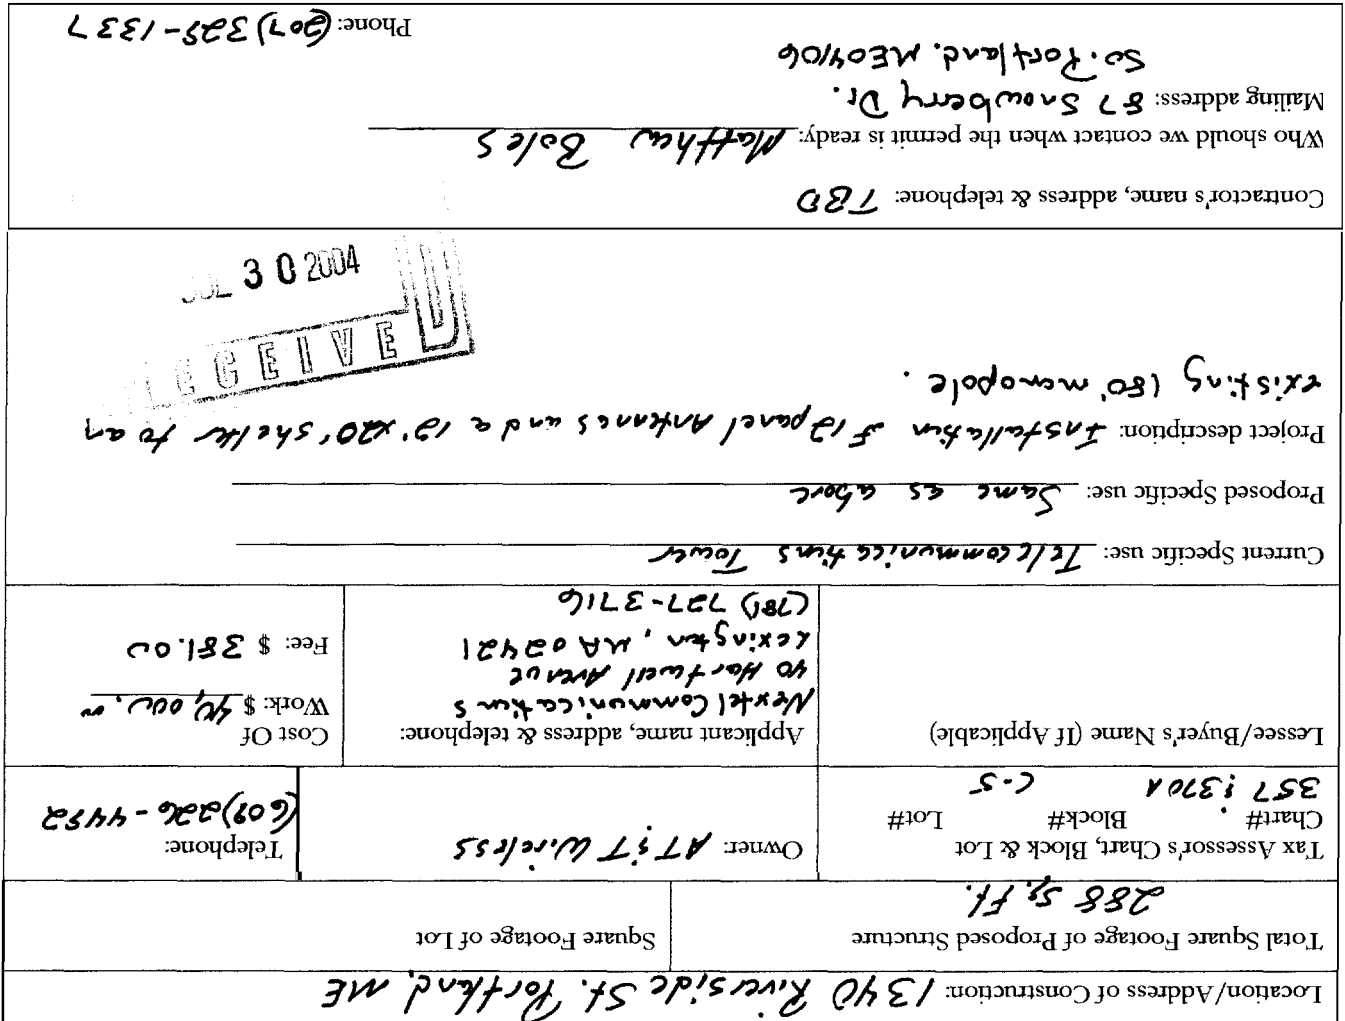 Location/Address of Construction: 1340 Riverside St. Portland, ME
Total Square Footage of Proposed Structure
288 sq. ft.
Square Footage of Lot
Tax Assessor's Chart, Block & Lot
Chart# Block# Lot#
357 & 370A C-5
Owner: AT&T Wireless
Telephone:
(609)226-4452
Lessee/Buyer's Name (If Applicable)
Applicant name, address & telephone:
Nextel Communications
40 Hartwell Avenue
Lexington, MA 02421
(781) 727-3716
Cost Of
Work: $ 40,000.00
Fee: $ 381.00
Current Specific use: Telecommunications Tower
Proposed Specific use: Same as above
Project description: Installation of 12 panel Antennas and a 12'x20' shelter to an
existing 180' monopole.
ECEIVED
30 2004
Contractor's name, address & telephone: TBD
Who should we contact when the permit is ready: Matthew Boles
Mailing address: 87 Snowberry Dr.
So. Portland, ME 04106
Phone: (207) 325-1337